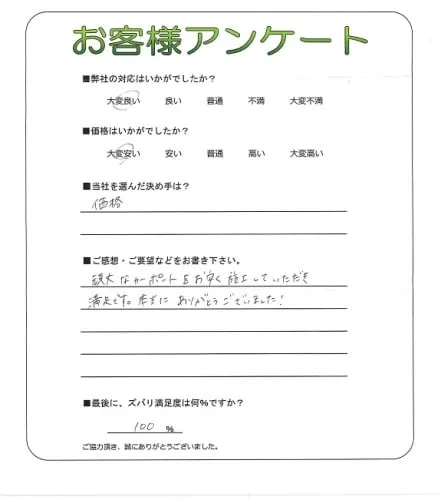 お客様アンケート
■弊社の対応はいかがでしたか?
大変良い 良い 普通 不満 大変不満
■価格はいかがでしたか?
大変安い 安い 普通 高い 大変高い
■当社を選んだ決め手は?
価格
■ご感想・ご要望などをお書き下さい。
なカーポートをお安く施工していただき
満足です。本当にありがとうございました!
■最後に、ズバリ満足度は何%ですか?
100 %
ご協力頂き、誠にありがとうございました。